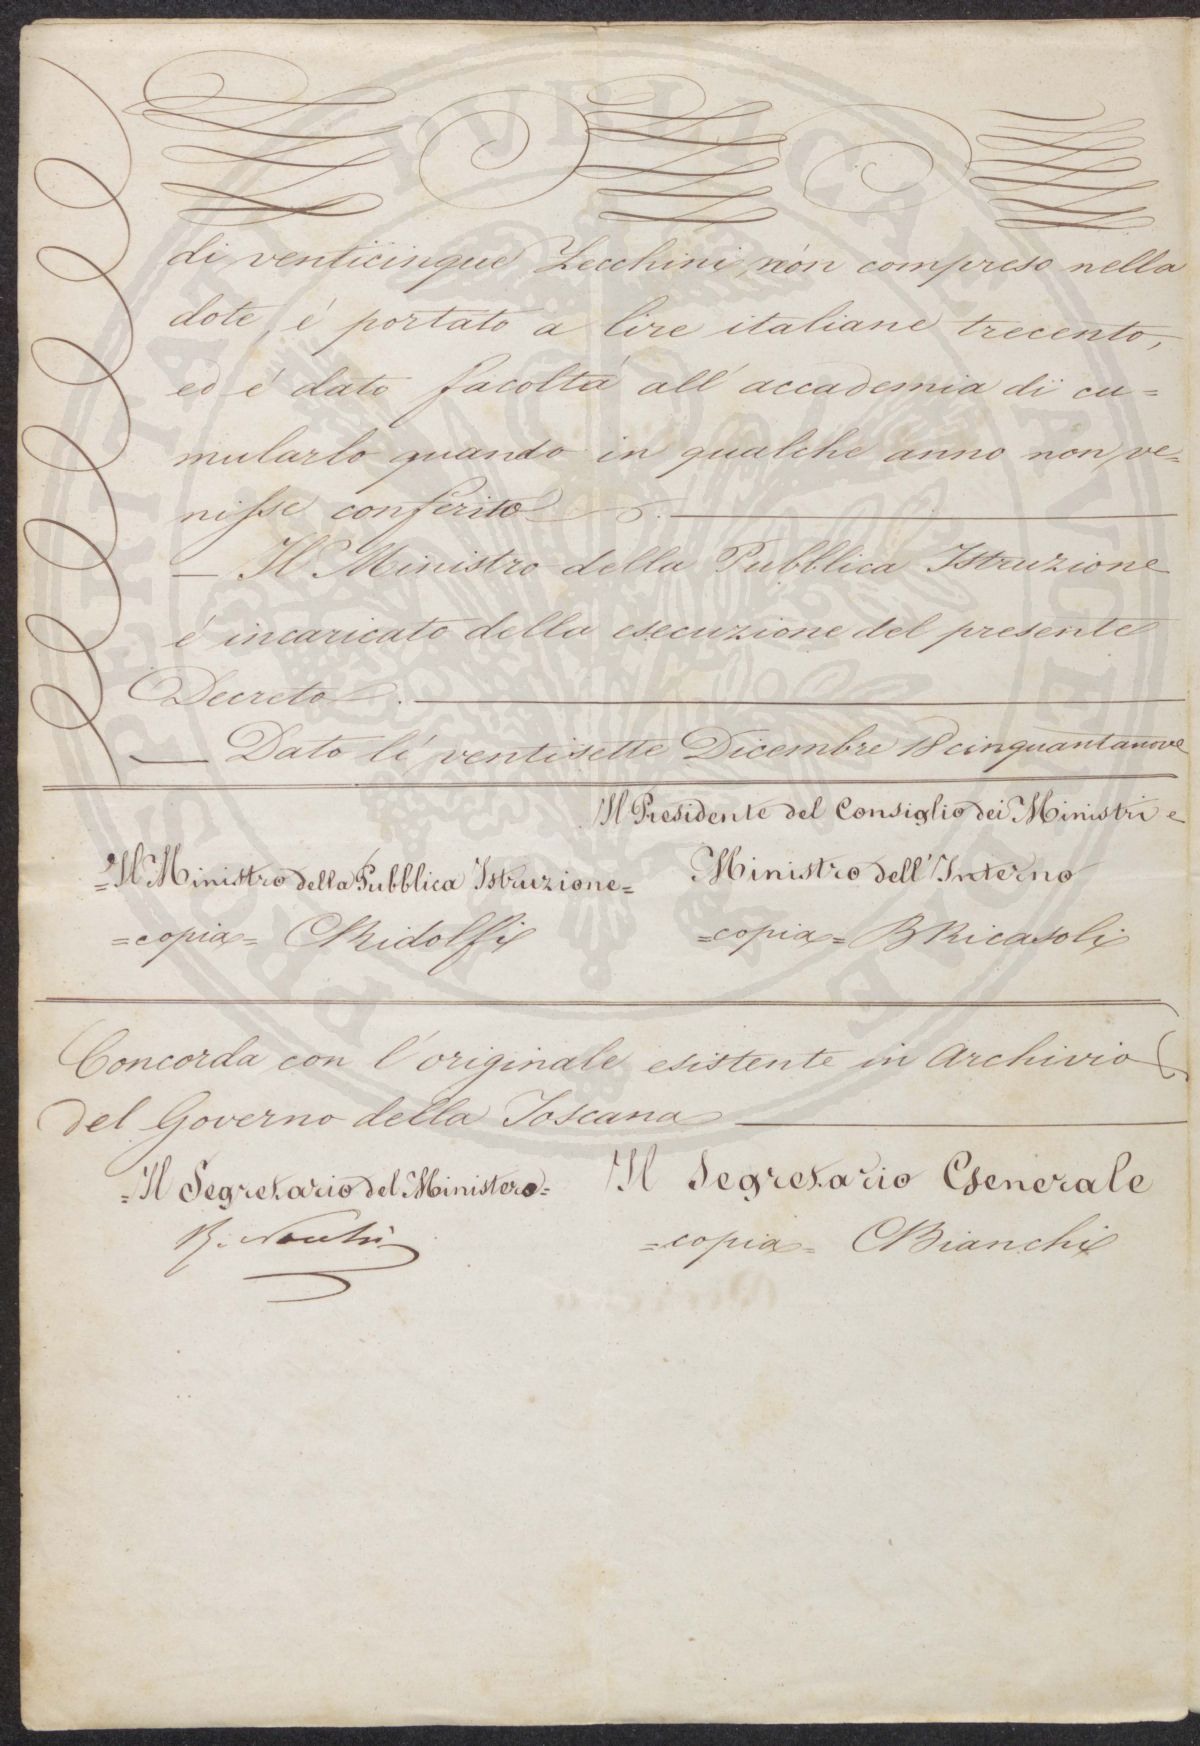 di venticinque Zecchini non compreso nella
dote, é portato a lire italiane trecento,
ed é dato facoltá all' accademia di cu=
mularlo quando in qualche anno non ve=
nisse conferito.
— Il Ministro della Pubblica Istruzione
é incaricato della esecuzione del presente
Decreto.
— Dato lí ventisette Dicembre 18cinquantanove
Il Presidente del Consiglio dei Ministri e
Ministro dell' Interno
=copia= BRicasoli
=Il Ministro della Pubblica Istruzione=
=copia= CRidolfi
Concorda con l'originale esistente in Archivio
del Governo della Toscana
=Il Segretario del Ministero=
Il Segretario Generale
=copia= CBianchi